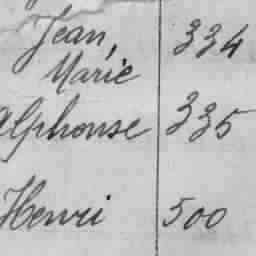 Jean, 334
Marie
Alphonse 335
Henri 500